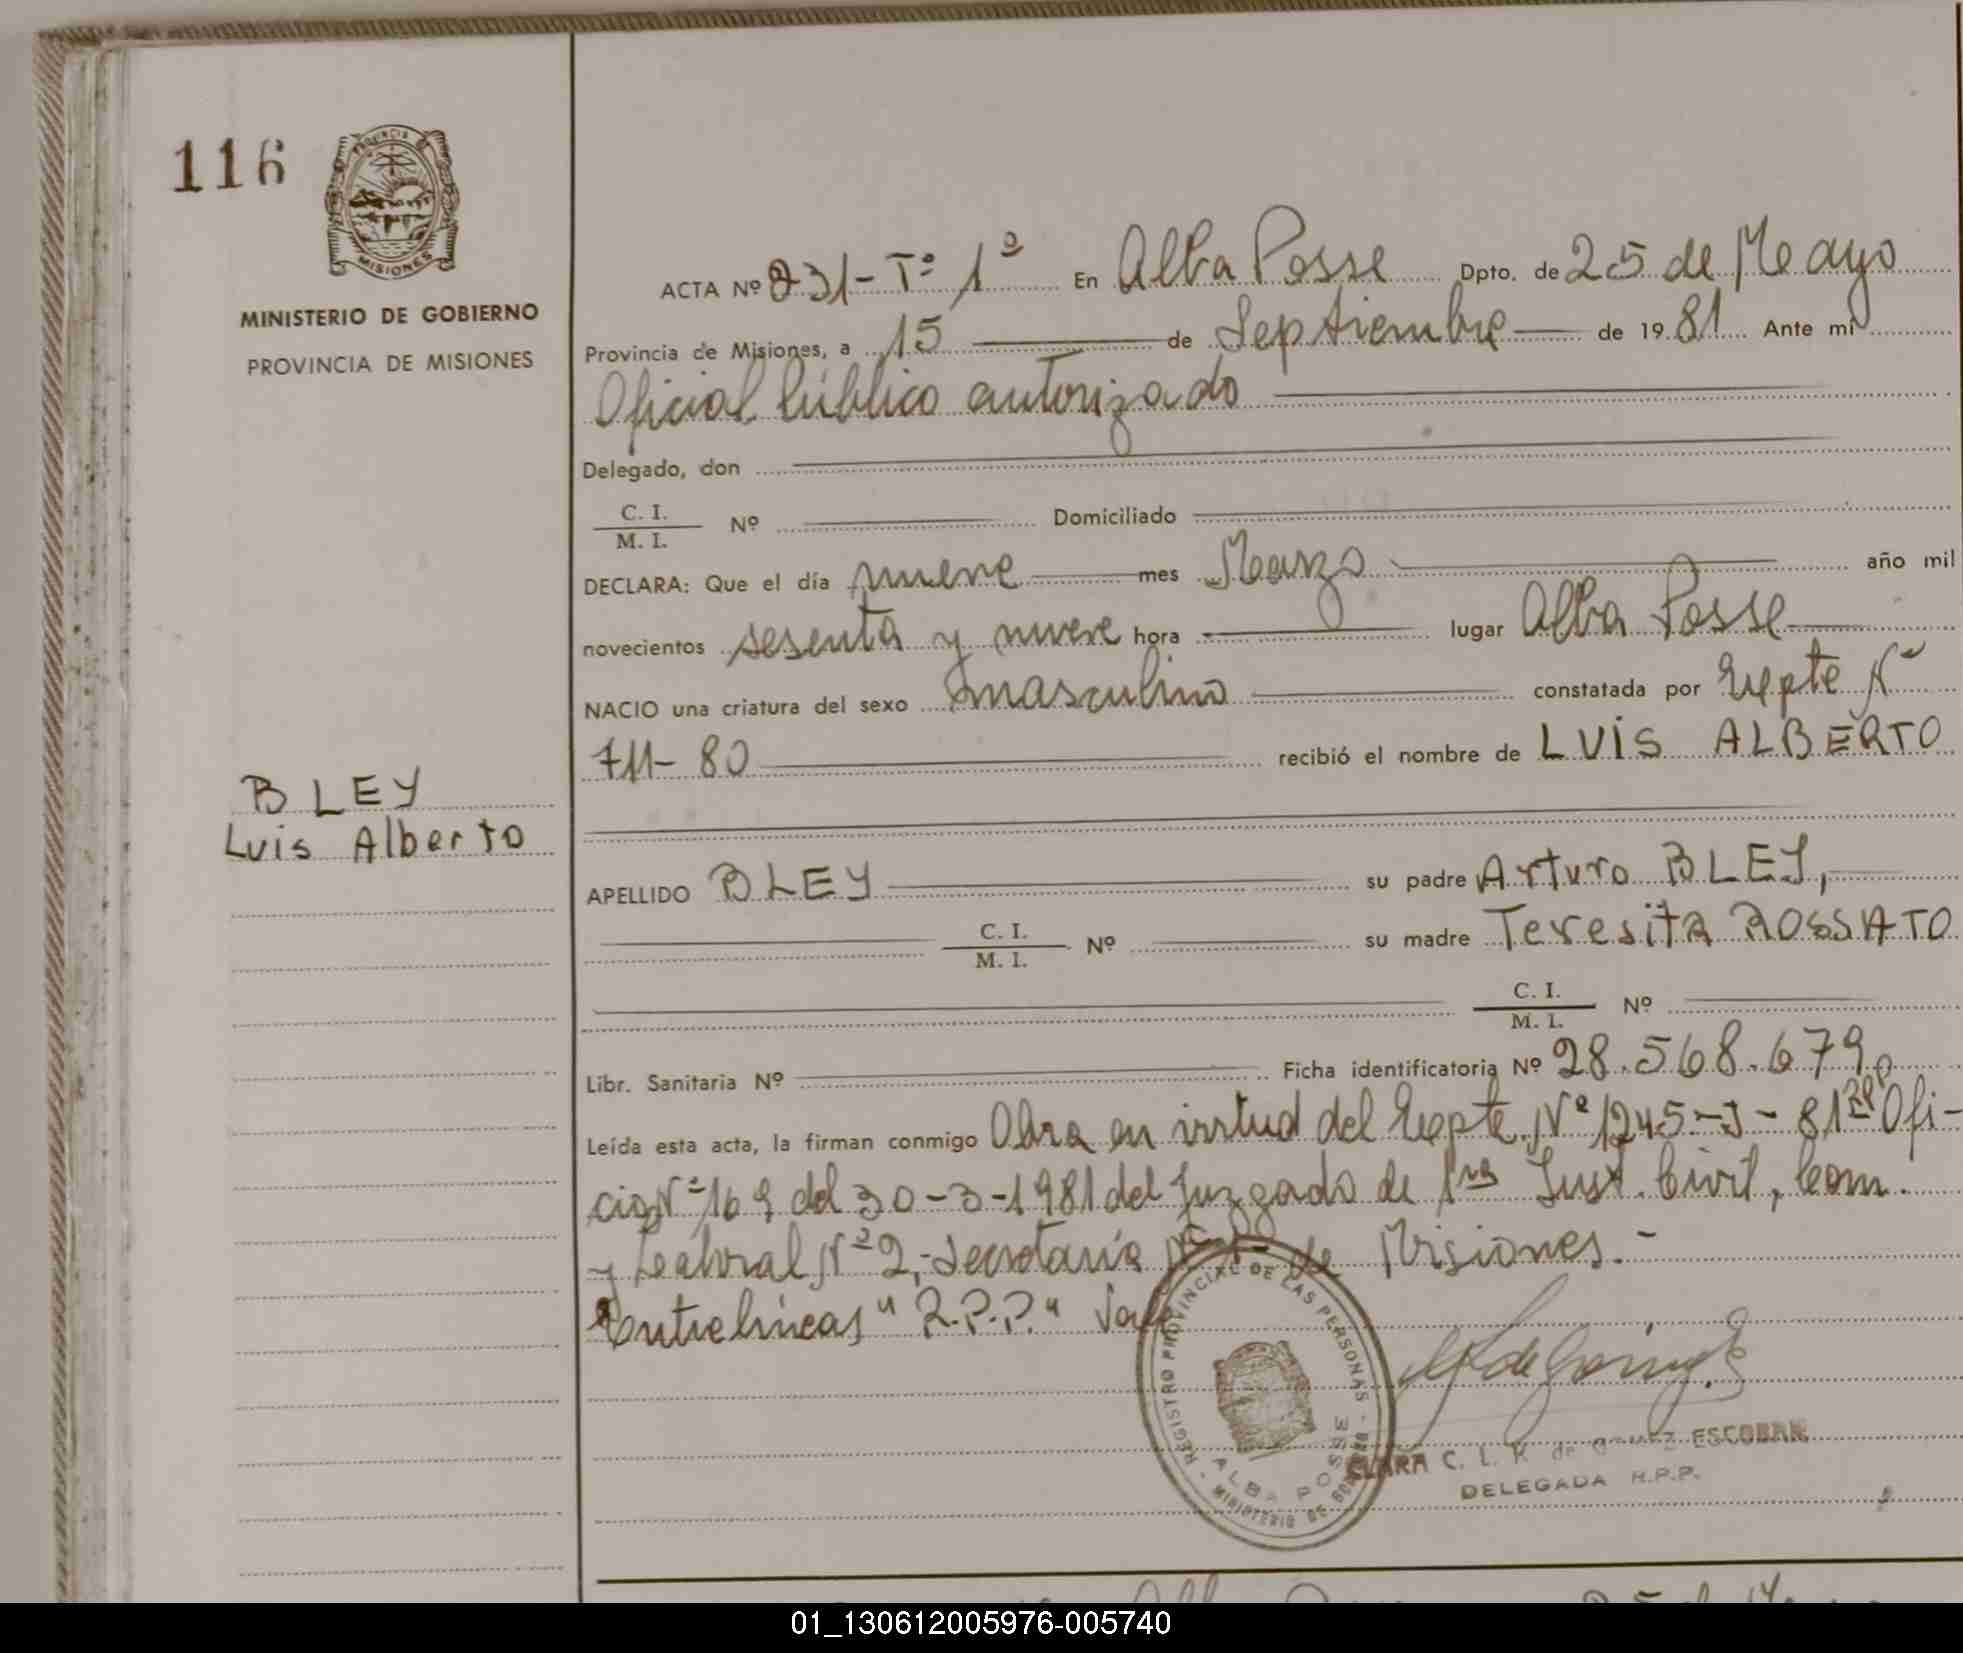 116
PROVINCIA
MISIONES
MINISTERIO DE GOBIERNO
PROVINCIA DE MISIONES
ACTA Nº 231- Tº 1º En Alba Posse Dpto. de 25 de Mayo
Provincia de Misiones, a 15 de Septiembre de 19 81 Ante mí
Oficial Público autorizado
Delegado, don
C. I.
M. I. Nº Domiciliado
DECLARA: Que el día nueve mes Marzo año mil
novecientos sesenta y nueve hora lugar Alba Posse
NACIO una criatura del sexo masculino constatada por Expte Nº
711- 80 recibió el nombre de LUIS ALBERTO
BLEY
Luis Alberto
APELLIDO BLEY su padre Arturo BLEY,
C. I.
M. I. Nº su madre Teresita ROSSATO
C. I.
M. I. Nº
Libr. Sanitaria Nº Ficha identificatoria Nº 28.568.679
Leída esta acta, la firman conmigo Obra en virtud del Expte. Nº 1245-J- 81 Ofi-
cio Nº 169 del 30-3-1981 del Juzgado de 1ra Inst. Civil, Com.
y Laboral Nº 2,- Secretaría de Misiones.-
Entrelíneas "R.P.P." Vale
REGISTRO PROVINCIAL DE LAS PERSONAS - MINISTERIO DE GOBIERNO
ALBA POSSE
CLARA C. L. K. de GOMEZ ESCOBAR
DELEGADA R.P.P.
01_130612005976-005740